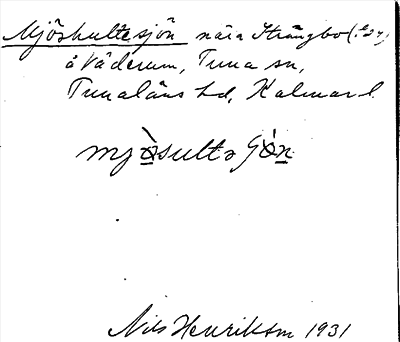 Mjöshultesjön nära Strångbo (lht)
å Väderum, Tuna sn,
Tunaläns hd, Kalmar l.
mjòsulta ʃòn
Nils Henrikson 1931